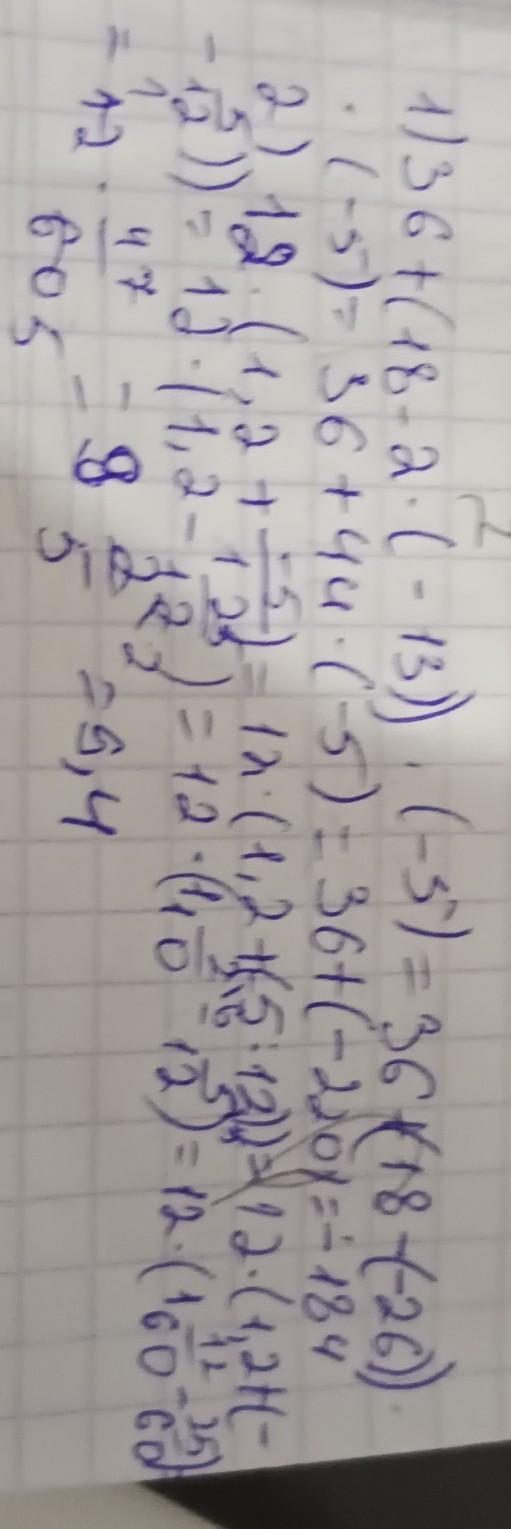 1) 36 + (18 - 2 · (-13)) · (-5) = 36 + (18 - (-26)) ·
· (-5) = 36 + 44 · (-5) = 36 + (-220) = -184
2) 12 · (1,2 + -5/12) = 12 · (1,2 + (-5 : 12)) = 12 · (1,2 + (-
- 5/12)) = 12 · (1,2 - 5/12) = 12 · (1 2/10 - 5/12) = 12 · (1 12/60 - 25/60)
= 12 · 47/60 = 9 2/5 = 9,4